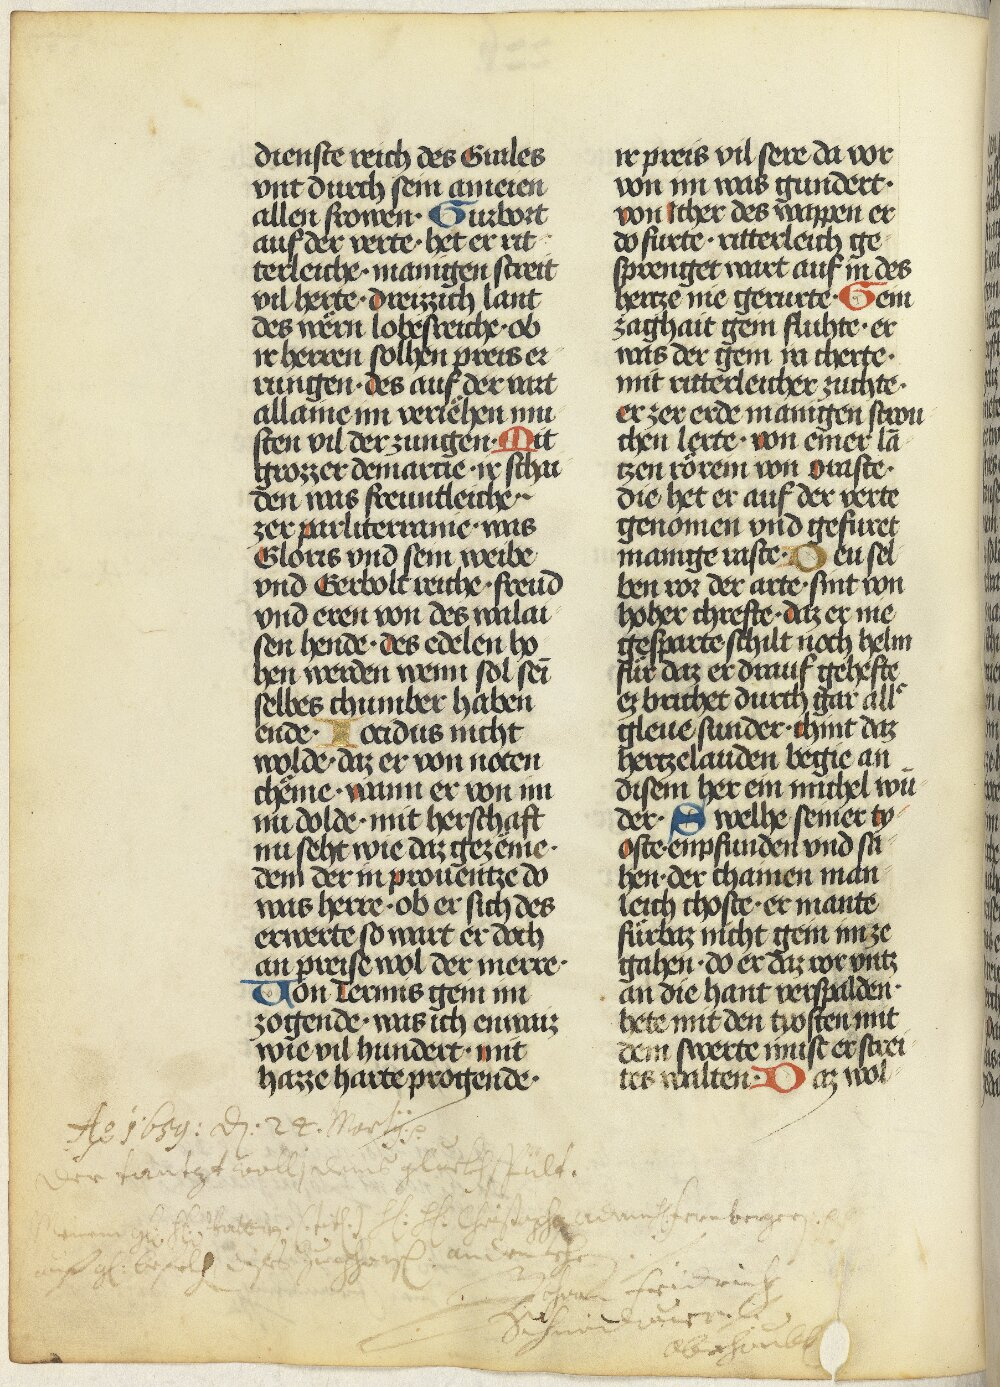 dienste reich des Gurles
vnt durch sein ameien
allen frowen · Gurbort
auf der verte · het er rit
terleiche · manigen streit
vil herte · dreizzich lant
des wern lobesreiche · ob
ir herren solhen preis er
rungen · des auf der vart
allaine im veriehen mu
sten vil der zungen · Mit
grozzer demartie · ir scha
den was freuntleiche
zer parliterranie · was
Gloris vnd sein weibe
vnd Gerbolt reiche · freud
vnd eren von des walai
sen hende · des edelen ho
hen werden wenn sol sei
selbes chumber haben
ende · Iocidus nicht
wolde · daz er von noten
chëme · wann er von im
nu dolde · mit herschaft
nu seht wie daz gezëme ·
dem der in prouentze do
was herre · ob er sich des
erwerte so wart er doch
an preise wol der merre ·
Von Termis gein im
zogende · was ich enwaiz
wie vil hundert · mit
hazze harte progende ·
ir preis vil sere da vor
von im was gundert ·
von Ither des wappen er
do furte · ritterleich ge
sprenget wart auf in des
hertze nie gerurte · Gein
zaghait gein fluhte · er
was der gein in cherte ·
mit ritterleicher zuchte ·
er zer erde manigen strou
chen lerte · von einer la
tzen rörein von oraste ·
die het er auf der verte
genomen vnd gefuret
manige raste · Deu sel
ben ror der arte · sint von
hoher chrefte · daz er nie
gesparte schilt noch helm
für daz er drauf gehefte
ez brichet durch gar alle
gleue sunder · chint daz
hertzelauden begie an
disem her ein michel wū
der · Swelhe seiner ty
oste enpfunden vnd sa
hen · der chainen man
leich choste · er mante
fürbaz nicht gein im ze
gahen · do er daz ror vntz
an die hant verspalden ·
hete mit den tyosten mit
dem swerte must er strei
tes walten · Daz wol
Ao 1659: D: 24. Martij
Der tantzt woll dems glückh spült.
Christoph Adam Fernberger
Johann Friedrich